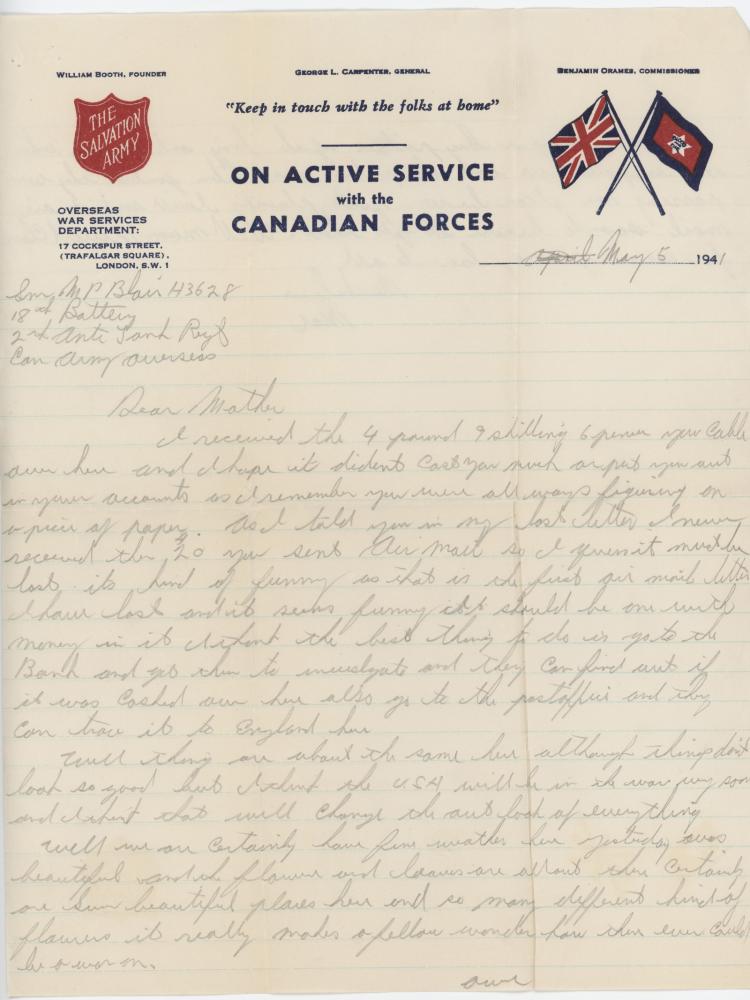 WILLIAM BOOTH, FOUNDER
GEORGE L. CARPENTER, GENERAL
BENJAMIN ORAMES, COMMISSIONER
THE
SALVATION
ARMY
"Keep in touch with the folks at home"
ON ACTIVE SERVICE
with the
CANADIAN FORCES
OVERSEAS
WAR SERVICES
DEPARTMENT:
17 COCKSPUR STREET,
(TRAFALGAR SQUARE),
LONDON, S.W. 1
April May 5 1941
Gnr M P Blair H3628
18th Battery
2nd Anti Tank Regt
Can Army overseas
Dear Mother
I received the 4 pound 9 shilling 6 pence you cable
over here and I hope it dident cost you much or put you out
in your accounts as I remember you were all ways figuring on
a piece of paper. As I told you in my last letter I never
received the $20 you sent Air Mail so I guess it must be
lost its kind of funny as that is the first air mail letter
I have lost and it seems funny it should be one with
money in it I think the best thing to do is go to the
Bank and get them to investigate and they can find out if
it was cashed over here also go to the postoffice and they
can trace it to England here
Well things are about the same here although things dont
look so good but I think the USA will be in the war very soon
and I think that will change the out look of everything
Well we are certainly have fine weather here yesterday was
beautiful and the flowers and leaves are all out there certainly
are some beautiful places here and so many different kind of
flowers it really makes a fellow wonder how there ever could
be a war on.
over